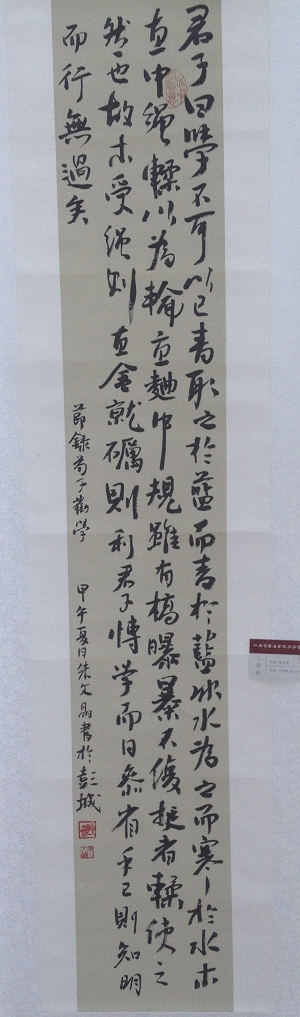 君子曰學不可以已青取之於藍而青於藍冰水為之而寒于於水木
直中繩輮以為輪直曲中規雖有槁暴暴不復挺者輮使之
然也故木受繩則直金就礪則利君子博学而日叅省乎己則知明
而行無過矣
節錄荀子勸學
甲午夏日朱文晶書於彭城